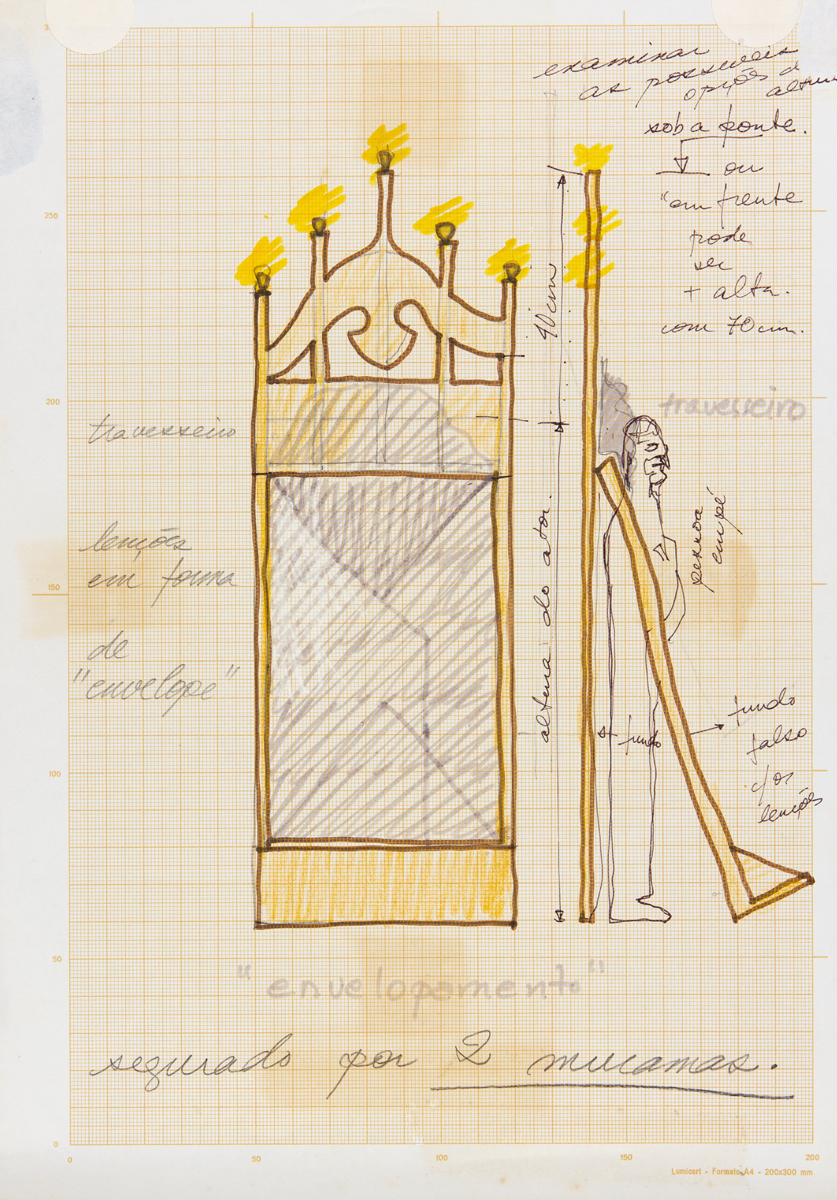 examinar
as possiveis
opções d
altura
sob a ponte.
ou
"em frente
pode
ser
+ alta.
com 70cm.
250
40cm
200
travesseiro
travesseiro
pessoa
em pé
150
lençóes
em forma
de
"envelope"
altura do ator.
fundo
fundo
falso
c/os
lençóes
100
50
"envelopamento"
segurado por 2 mucamas.
0
0
50
100
150
200
Lumicart - Formato A4 - 200x300 mm